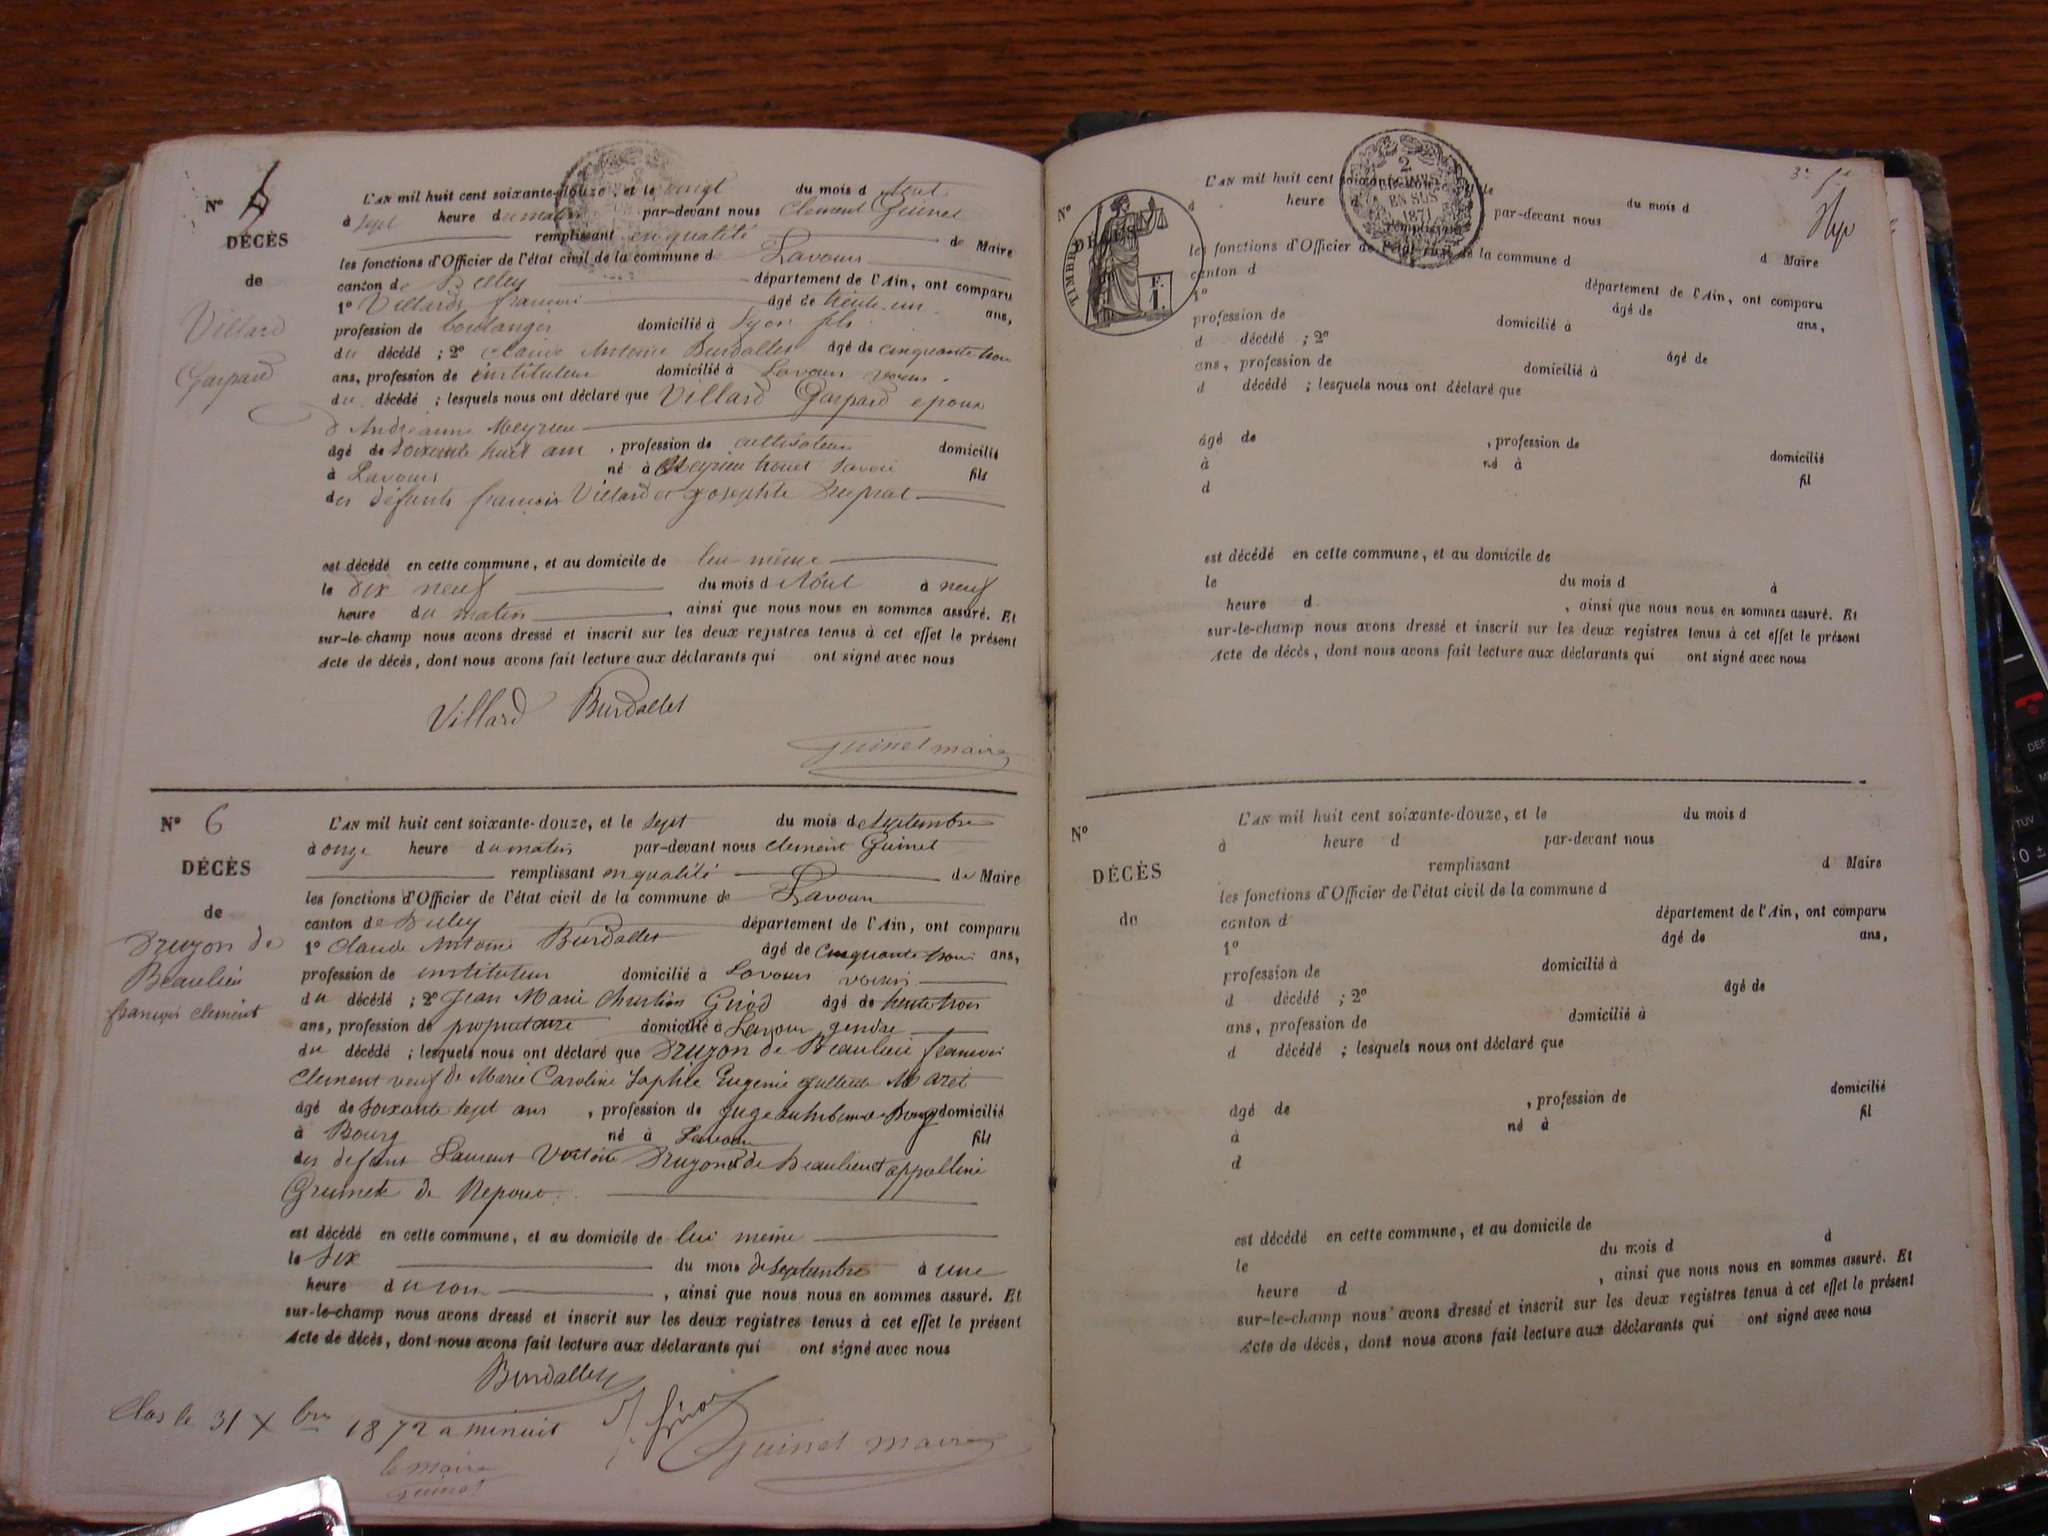 Nº
DÉCÈS
de
Villard
Gaspard
L'AN mil huit cent soixante-douze, et le vingt du mois d Aout
à sept heure du matin par-devant nous Clement Guinet
remplissant en qualité de Maire
les fonctions d'Officier de l'état civil de la commune d Lavours
canton de Belley département de l'Ain, ont comparu
1º Villard françois âgé de trente un ans,
profession de boulanger domicilié à Lyon fils
du décédé ; 2º Claude Antoine Burdallet âgé de cinquante trois
ans, profession de instituteur domicilié à Lavours voisin
du décédé ; lesquels nous ont déclaré que Villard Gaspard epoux
d'Andréanne Meyrieu
âgé de soixante huit ans, profession de cultivateur domicilié
à Lavours né à Meyrieu Savoie fils
des défunts françois Villard et Josephte
est décédé en cette commune, et au domicile de lui-même
le dix neuf du mois d Aout à neuf
heure du matin, ainsi que nous nous en sommes assuré. Et
sur-le-champ nous avons dressé et inscrit sur les deux registres tenus à cet effet le présent
Acte de décès, dont nous avons fait lecture aux déclarants qui ont signé avec nous
Villard Burdallet
Guinet maire
Nº 6
DÉCÈS
de
Druyon de
Beaulieu
françois clement
L'AN mil huit cent soixante-douze, et le sept du mois de septembre
à onze heure du matin par-devant nous clement Guinet
remplissant en qualité de Maire
les fonctions d'Officier de l'état civil de la commune de Lavours
canton de Belley département de l'Ain, ont comparu
1º Claude Antoine Burdallet âgé de cinquante trois ans,
profession de instituteur domicilié à Lavours voisin
du décédé ; 2º Jean Marie Christian Girod âgé de trente trois
ans, profession de propriétaire domicilié à Lavours gendre
du décédé ; lesquels nous ont déclaré que Druyon de Beaulieu francois
Clement veuf de Marie Caroline Sophie Eugenie Maret
âgé de soixante sept ans, profession de juge au tribunal de Bourg domicilié
à Bourg né à Lavours fils
des defunt Laurent Druyon de Beaulieu et appolline
Grumet de
est décédé en cette commune, et au domicile de lui même
le six du mois de septembre à une
heure du soir, ainsi que nous nous en sommes assuré. Et
sur-le-champ nous avons dressé et inscrit sur les deux registres tenus à cet effet le présent
Acte de décès, dont nous avons fait lecture aux déclarants qui ont signé avec nous
Burdallet
Girod
Guinet maire
Clos le 31 Xbre 1872 a minuit
le maire
Guinet
3e
Nº
DÉCÈS
TIMBRE
F.
1.
2
EN SUS
1871
L'AN mil huit cent soixante-douze, et le du mois d
heure d par-devant nous
remplissant d Maire
les fonctions d'Officier de l'état civil de la commune d
canton d département de l'Ain, ont comparu
1º âgé de ans,
profession de domicilié à
d décédé ; 2º âgé de
ans, profession de domicilié à
d décédé ; lesquels nous ont déclaré que
âgé de , profession de domicilié
à né à fil
d
est décédé en cette commune, et au domicile de
le du mois d à
heure d , ainsi que nous nous en sommes assuré. Et
sur-le-champ nous avons dressé et inscrit sur les deux registres tenus à cet effet le présent
Acte de décès, dont nous avons fait lecture aux déclarants qui ont signé avec nous
Nº
DÉCÈS
de
L'AN mil huit cent soixante-douze, et le du mois d
à heure d par-devant nous
remplissant d Maire
les fonctions d'Officier de l'état civil de la commune d
canton d département de l'Ain, ont comparu
1º âgé de ans,
profession de domicilié à
d décédé ; 2º âgé de
ans, profession de domicilié à
d décédé ; lesquels nous ont déclaré que
âgé de , profession de domicilié
à né à fil
d
est décédé en cette commune, et au domicile de
le du mois d à
heure d , ainsi que nous nous en sommes assuré. Et
sur-le-champ nous avons dressé et inscrit sur les deux registres tenus à cet effet le présent
Acte de décès, dont nous avons fait lecture aux déclarants qui ont signé avec nous
DEF
TUV
0 ±